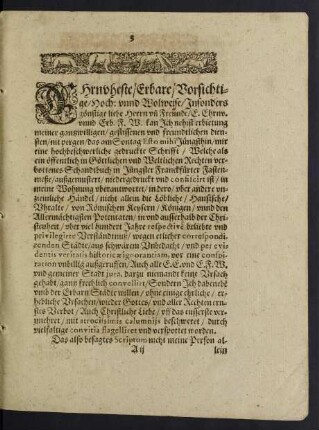 Ehrnvheste / Erbare / Vorsichti-
ge / Hoch: vnnd Wolweyse / Insonders
günstige liebe Herrn vñ Freunde / E. Ehrnv.
vnnd Erb. F. W. kan Ich nebst erbietung
meiner gantzwilligen / geflissenen vnd freundtlichen dien-
sten / nit pergen / das am Sontag Esto mihi Jüngsthin / mit
eine hochbeschwerliche gedruckte Schrifft / Welche als
ein öffentlich in Göttlichen vnd Weltlichen Rechten ver-
bottenes Schandtbuch in Jüngster Franckfürter Fasten-
messe / außgemustert / niedergedruckt vnd confisciret ist / in
meine Wohnung vberantwortet / in dero / vber andere vn-
zemliche Händel / nicht allein die Löbliche / Hansische /
Vhralte / von Römischen Keysern / Königen / vnnd den
Allermächtigsten Potentaten / in vnd ausserhalb der Chri-
stenheit / vber viel hundert Jahre respectivè beliebte vnd
privilegirte Verständtnus / wegen etlicher correspondi-
renden Städte / aus schwärem Vnbedacht / vnd per evi
dentis veritatis historicæ ignorantiam, vor eine conspi-
ration vnbillig außgeruffen / Auch alle E. E. vnd E. F. W.
vnd gemeiner Stadt jura, darzu niemandt keine Vrsach
gehabt / gantz freylich convelliret / Sondern Ich daheneben
vnd der Erbarn Städte willen / ohne einige ehrliche / er-
hebliche Vrsachen / wieder Gottes / vnd aller Rechten ern-
stes Verbot / Auch Christliche Liebe / vff das eusserste ver-
unehret / mit atrocissimis calumniis beschweret / durch
vielfaltige convitia flagelliret vnd verspottet worden.
Das also besagtes Scriptum nicht meine Person al-
A ij lein